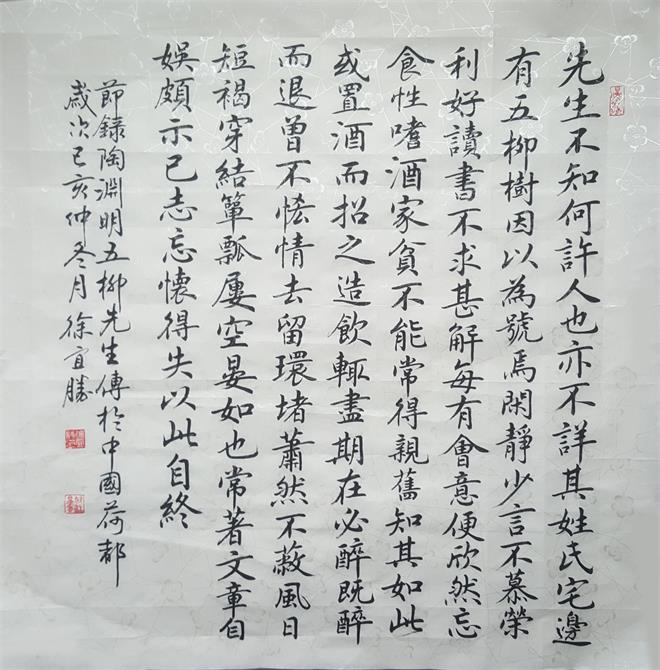 先生不知何許人也亦不詳其姓氏宅邊
有五柳樹因以為號焉閑靜少言不慕榮
利好讀書不求甚解每有會意便欣然忘
食性嗜酒家貧不能常得親舊知其如此
或置酒而招之造飲輒盡期在必醉既醉
而退曾不恡情去留環堵蕭然不蔽風日
短褐穿結簞瓢屢空晏如也常著文章自
娛頗示己志忘懷得失以此自終
節錄陶淵明五柳先生傳於中國荷都
歲次己亥仲冬月徐宜勝